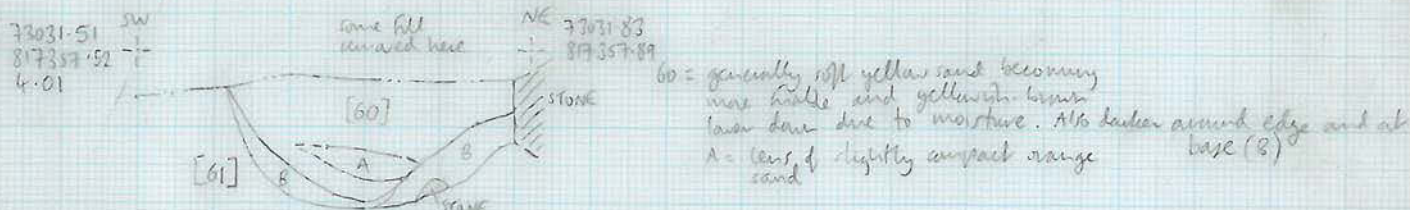 SW
73031.51
817357.52
4.01
some fill
removed here
NE
73031.83
817357.89
STONE
[60]
A
B
B
[61]
STONE
60 = generally soft yellow sand becoming
more friable and yellowish-brown
lower down due to moisture. Also darker around edge and at
base (B)
A = lens of slightly compact orange
sand